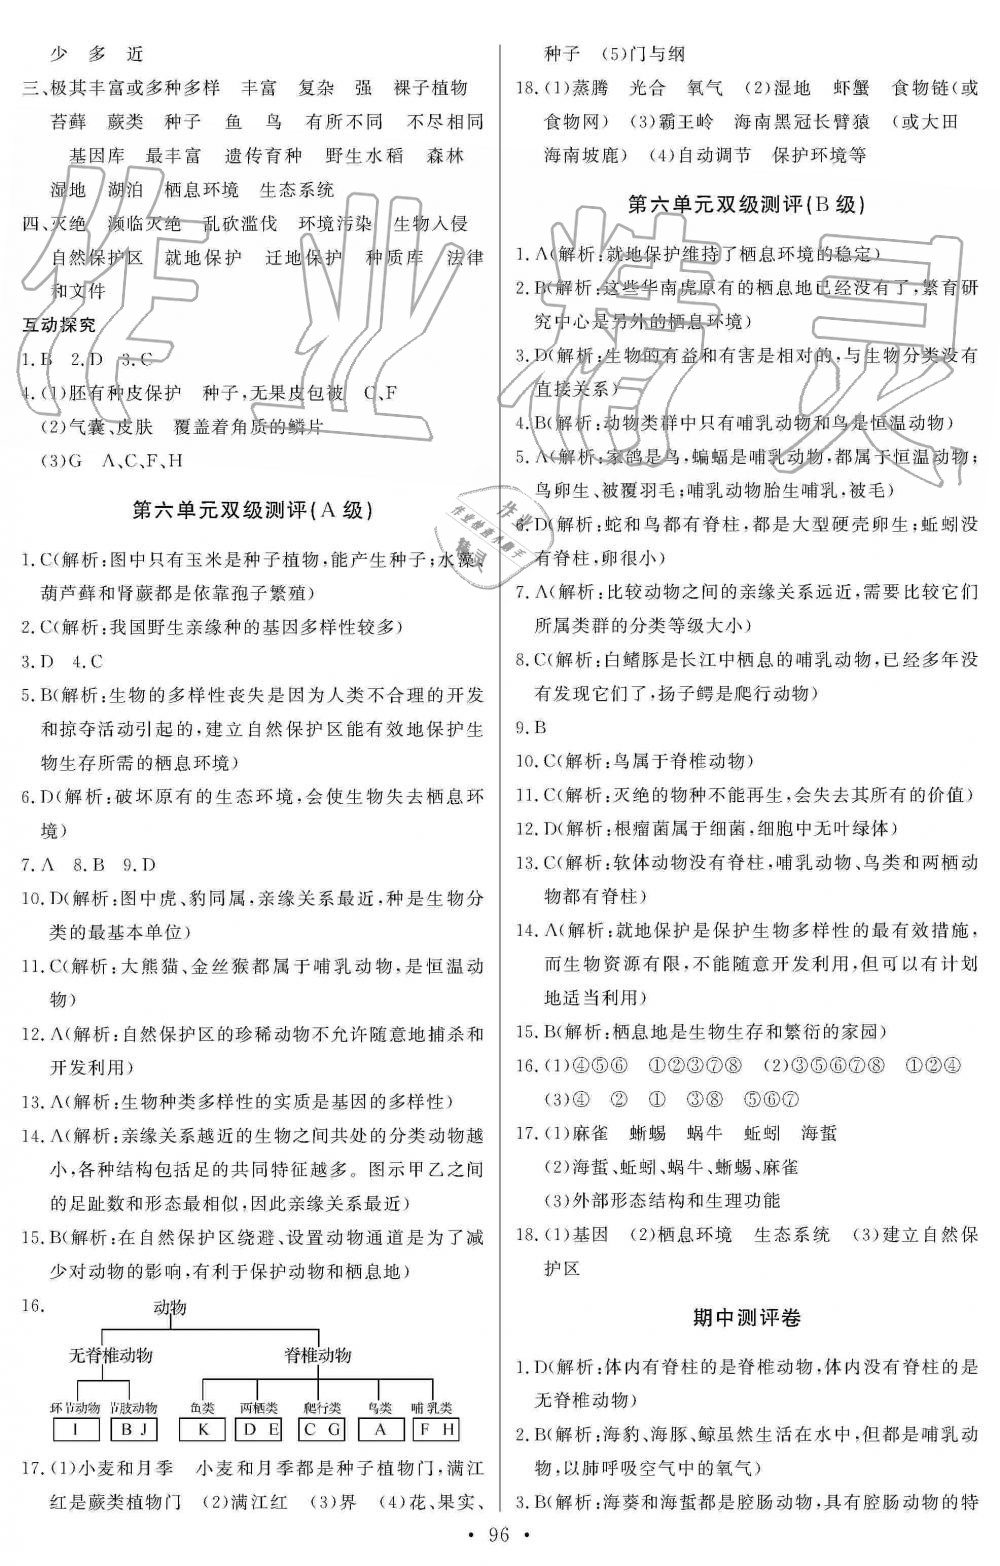 少　多　近
三、极其丰富或多种多样　丰富　复杂　强　裸子植物
苔藓　蕨类　种子　鱼　鸟　有所不同　不尽相同
基因库　最丰富　遗传育种　野生水稻　森林
湿地　湖泊　栖息环境　生态系统
四、灭绝　濒临灭绝　乱砍滥伐　环境污染　生物入侵
自然保护区　就地保护　迁地保护　种质库　法律
和文件
互动探究
1. B　2. D　3. C
4. (1)胚有种皮保护　种子,无果皮包被　C、F
(2)气囊、皮肤　覆盖着角质的鳞片
(3)G　A、C、F、H
第六单元双级测评(A级)
1. C(解析:图中只有玉米是种子植物,能产生种子;水藻、
葫芦藓和肾蕨都是依靠孢子繁殖)
2. C(解析:我国野生亲缘种的基因多样性较多)
3. D　4. C
5. B(解析:生物的多样性丧失是因为人类不合理的开发
和掠夺活动引起的,建立自然保护区能有效地保护生
物生存所需的栖息环境)
6. D(解析:破坏原有的生态环境,会使生物失去栖息环
境)
7. A　8. B　9. D
10. D(解析:图中虎、豹同属,亲缘关系最近,种是生物分
类的最基本单位)
11. C(解析:大熊猫、金丝猴都属于哺乳动物,是恒温动
物)
12. A(解析:自然保护区的珍稀动物不允许随意地捕杀和
开发利用)
13. A(解析:生物种类多样性的实质是基因的多样性)
14. A(解析:亲缘关系越近的生物之间共处的分类动物越
小,各种结构包括足的共同特征越多。图示甲乙之间
的足趾数和形态最相似,因此亲缘关系最近)
15. B(解析:在自然保护区绕避、设置动物通道是为了减
少对动物的影响,有利于保护动物和栖息地)
16.
动物
无脊椎动物　脊椎动物
环节动物　节肢动物　鱼类　两栖类　爬行类　鸟类　哺乳类
I　B J　K　D E　C G　A　F H
17. (1)小麦和月季　小麦和月季都是种子植物门,满江
红是蕨类植物门　(2)满江红　(3)界　(4)花、果实、
种子　(5)门与纲
18. (1)蒸腾　光合　氧气　(2)湿地　虾蟹　食物链(或
食物网)　(3)霸王岭　海南黑冠长臂猿　(或大田
海南坡鹿)　(4)自动调节　保护环境等
第六单元双级测评(B级)
1. A(解析:就地保护维持了栖息环境的稳定)
2. B(解析:这些华南虎原有的栖息地已经没有了,繁育研
究中心是另外的栖息环境)
3. D(解析:生物的有益和有害是相对的,与生物分类没有
直接关系)
4. B(解析:动物类群中只有哺乳动物和鸟是恒温动物)
5. A(解析:家鸽是鸟,蝙蝠是哺乳动物,都属于恒温动物;
鸟卵生、被覆羽毛;哺乳动物胎生哺乳,被毛)
6. D(解析:蛇和鸟都有脊柱,都是大型硬壳卵生;蚯蚓没
有脊柱,卵很小)
7. A(解析:比较动物之间的亲缘关系远近,需要比较它们
所属类群的分类等级大小)
8. C(解析:白鳍豚是长江中栖息的哺乳动物,已经多年没
有发现它们了,扬子鳄是爬行动物)
9. B
10. C(解析:鸟属于脊椎动物)
11. C(解析:灭绝的物种不能再生,会失去其所有的价值)
12. D(解析:根瘤菌属于细菌,细胞中无叶绿体)
13. C(解析:软体动物没有脊柱,哺乳动物、鸟类和两栖动
物都有脊柱)
14. A(解析:就地保护是保护生物多样性的最有效措施,
而生物资源有限,不能随意开发利用,但可以有计划
地适当利用)
15. B(解析:栖息地是生物生存和繁衍的家园)
16. (1)④⑤⑥　①②③⑦⑧　(2)③⑤⑥⑦⑧　①②④
(3)④　②　①　③⑧　⑤⑥⑦
17. (1)麻雀　蜥蜴　蜗牛　蚯蚓　海蜇
(2)海蜇、蚯蚓、蜗牛、蜥蜴、麻雀
(3)外部形态结构和生理功能
18. (1)基因　(2)栖息环境　生态系统　(3)建立自然保
护区
期中测评卷
1. D(解析:体内有脊柱的是脊椎动物,体内没有脊柱的是
无脊椎动物)
2. B(解析:海豹、海豚、鲸虽然生活在水中,但都是哺乳动
物,以肺呼吸空气中的氧气)
3. B(解析:海葵和海蜇都是腔肠动物,具有腔肠动物的特
• 96 •
作业精灵